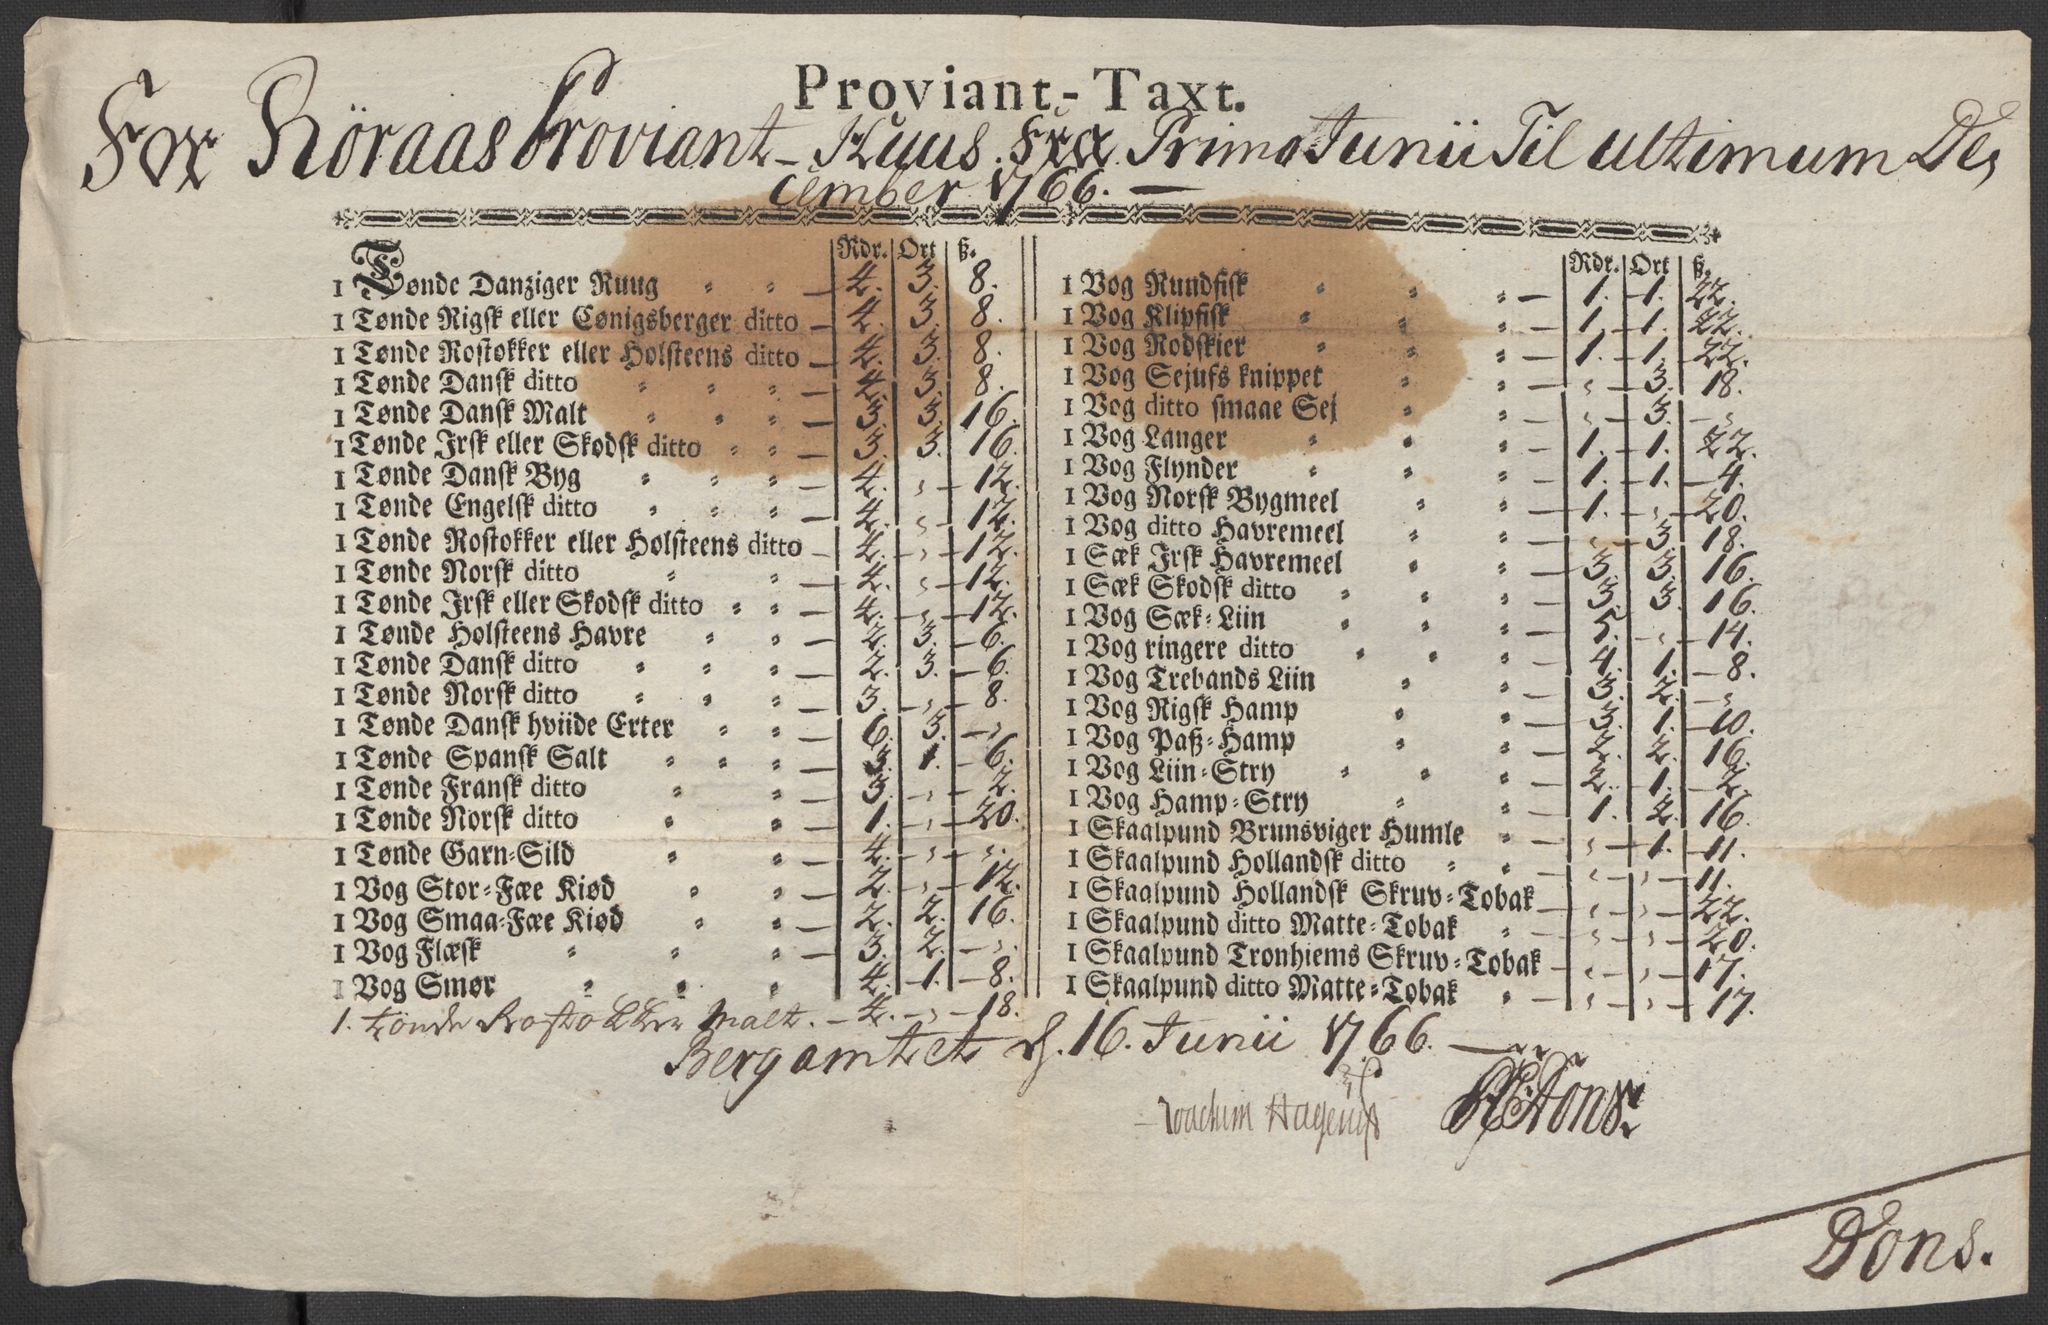 Proviant-Taxt.
For Röraas Proviant-Huus. Fra Primo Junii Til ultimum De,
cember 1766. —
Rdr. Ort ß.
1 Tønde Danziger Ruug — 4. 3. 8.
1 Tønde Rigsk eller Cønigsberger ditto — 4. 3. 8.
1 Tønde Rostokker eller Holsteens ditto — 4. 3. 8.
1 Tønde Dansk ditto — 4. 3. 8.
1 Tønde Dansk Malt — 3. 3. 16.
1 Tønde Irsk eller Skodsk ditto — 3. 3. 16.
1 Tønde Dansk Byg — 4. „ 12.
1 Tønde Engelsk ditto — 4. „ 12.
1 Tønde Rostokker eller Holsteens ditto — 4. „ 12.
1 Tønde Norsk ditto — 4. „ 12.
1 Tønde Irsk eller Skodsk ditto — 4. „ 12.
1 Tønde Holsteens Havre — 2. 3. 6.
1 Tønde Dansk ditto — 2. 3. 6.
1 Tønde Norsk ditto — 3. „ 8.
1 Tønde Dansk hviide Erter — 6. 3. „
1 Tønde Spansk Salt — 3. 1. 6.
1 Tønde Fransk ditto — 3. „ 2.
1 Tønde Norsk ditto — 1. „ 20.
1 Tønde Garn-Sild — 4. „ „
1 Vog Stor-Fæe Kiød — 2. „ 12.
1 Vog Smaa-Fæe Kiød — 2. 2. 16.
1 Vog Flæsk — 3. 2. „
1 Vog Smør — 4. 1. 8.
1. tönde Rostokker Malt. — 4. „ 18.
Rdr. Ort ß.
1 Vog Rundfisk — 1. 1. 22.
1 Vog Klipfisk — 1. 1. 22.
1 Vog Rodskier — 1. 1. 22.
1 Vog Sejufs knippet — „ 3. 18.
1 Vog ditto smaae Sej — „ 3. „
1 Vog Langer — 1. 1. 22.
1 Vog Flynder — 1. 1. 4.
1 Vog Norsk Bygmeel — 1. „ 20.
1 Vog ditto Havremeel — „ 3. 18.
1 Sæk Irsk Havremeel — 3. 3. 16.
1 Sæk Skodsk ditto — 3. 3. 16.
1 Vog Sæk-Liin — 5. „ 14.
1 Vog ringere ditto — 4. 1. 8.
1 Vog Trebands Liin — 3. 2. „
1 Vog Rigsk Hamp — 3. 1. 10.
1 Vog Paß-Hamp — 2. 2. 16.
1 Vog Liin-Stry — 2. 1. 2.
1 Vog Hamp-Stry — 1. 2. 16.
1 Skaalpund Brunsviger Humle — „ 1. 11.
1 Skaalpund Hollandsk ditto — „ „ 11.
1 Skaalpund Hollandsk Skruv-Tobak — „ „ 22.
1 Skaalpund ditto Matte-Tobak — „ „ 20.
1 Skaalpund Tronhiems Skruv-Tobak — „ „ 17.
1 Skaalpund ditto Matte-Tobak — „ „ 17.
Bergamtet d. 16. Junii 1766. —
Joachim Hagerup
Dons.